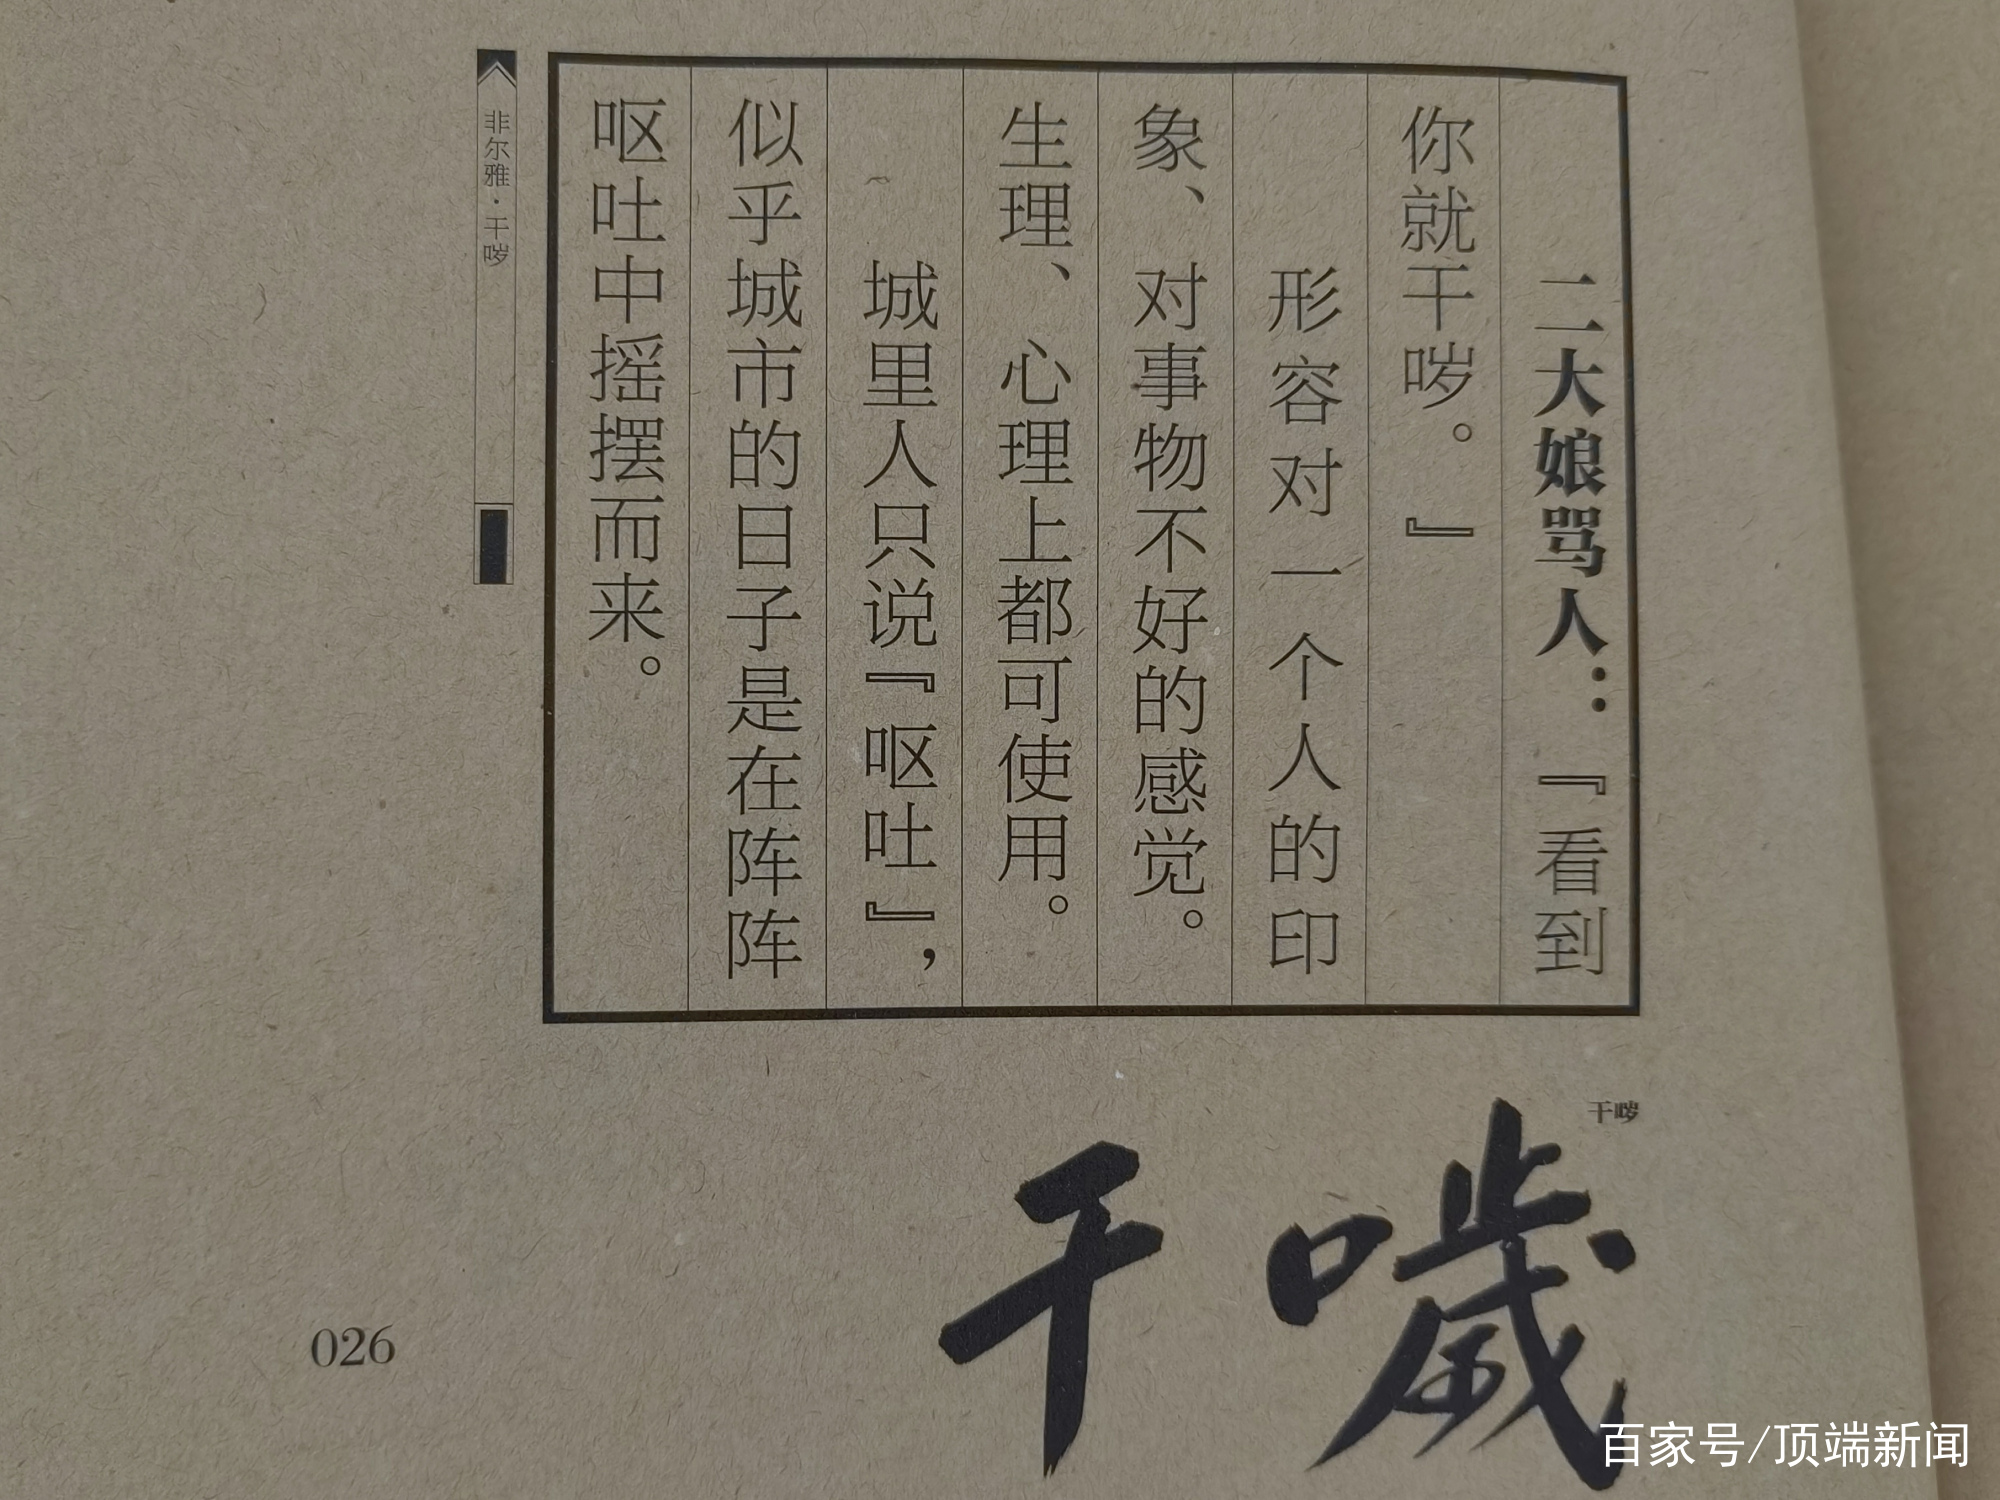 二大娘骂人：『看到
你就干哕。』
形容对一个人的印
象、对事物不好的感觉。
生理、心理上都可使用。
城里人只说『呕吐』，
似乎城市的日子是在阵阵
呕吐中摇摆而来。
非尔雅·干哕
干哕
干噦
026
百家号/顶端新闻